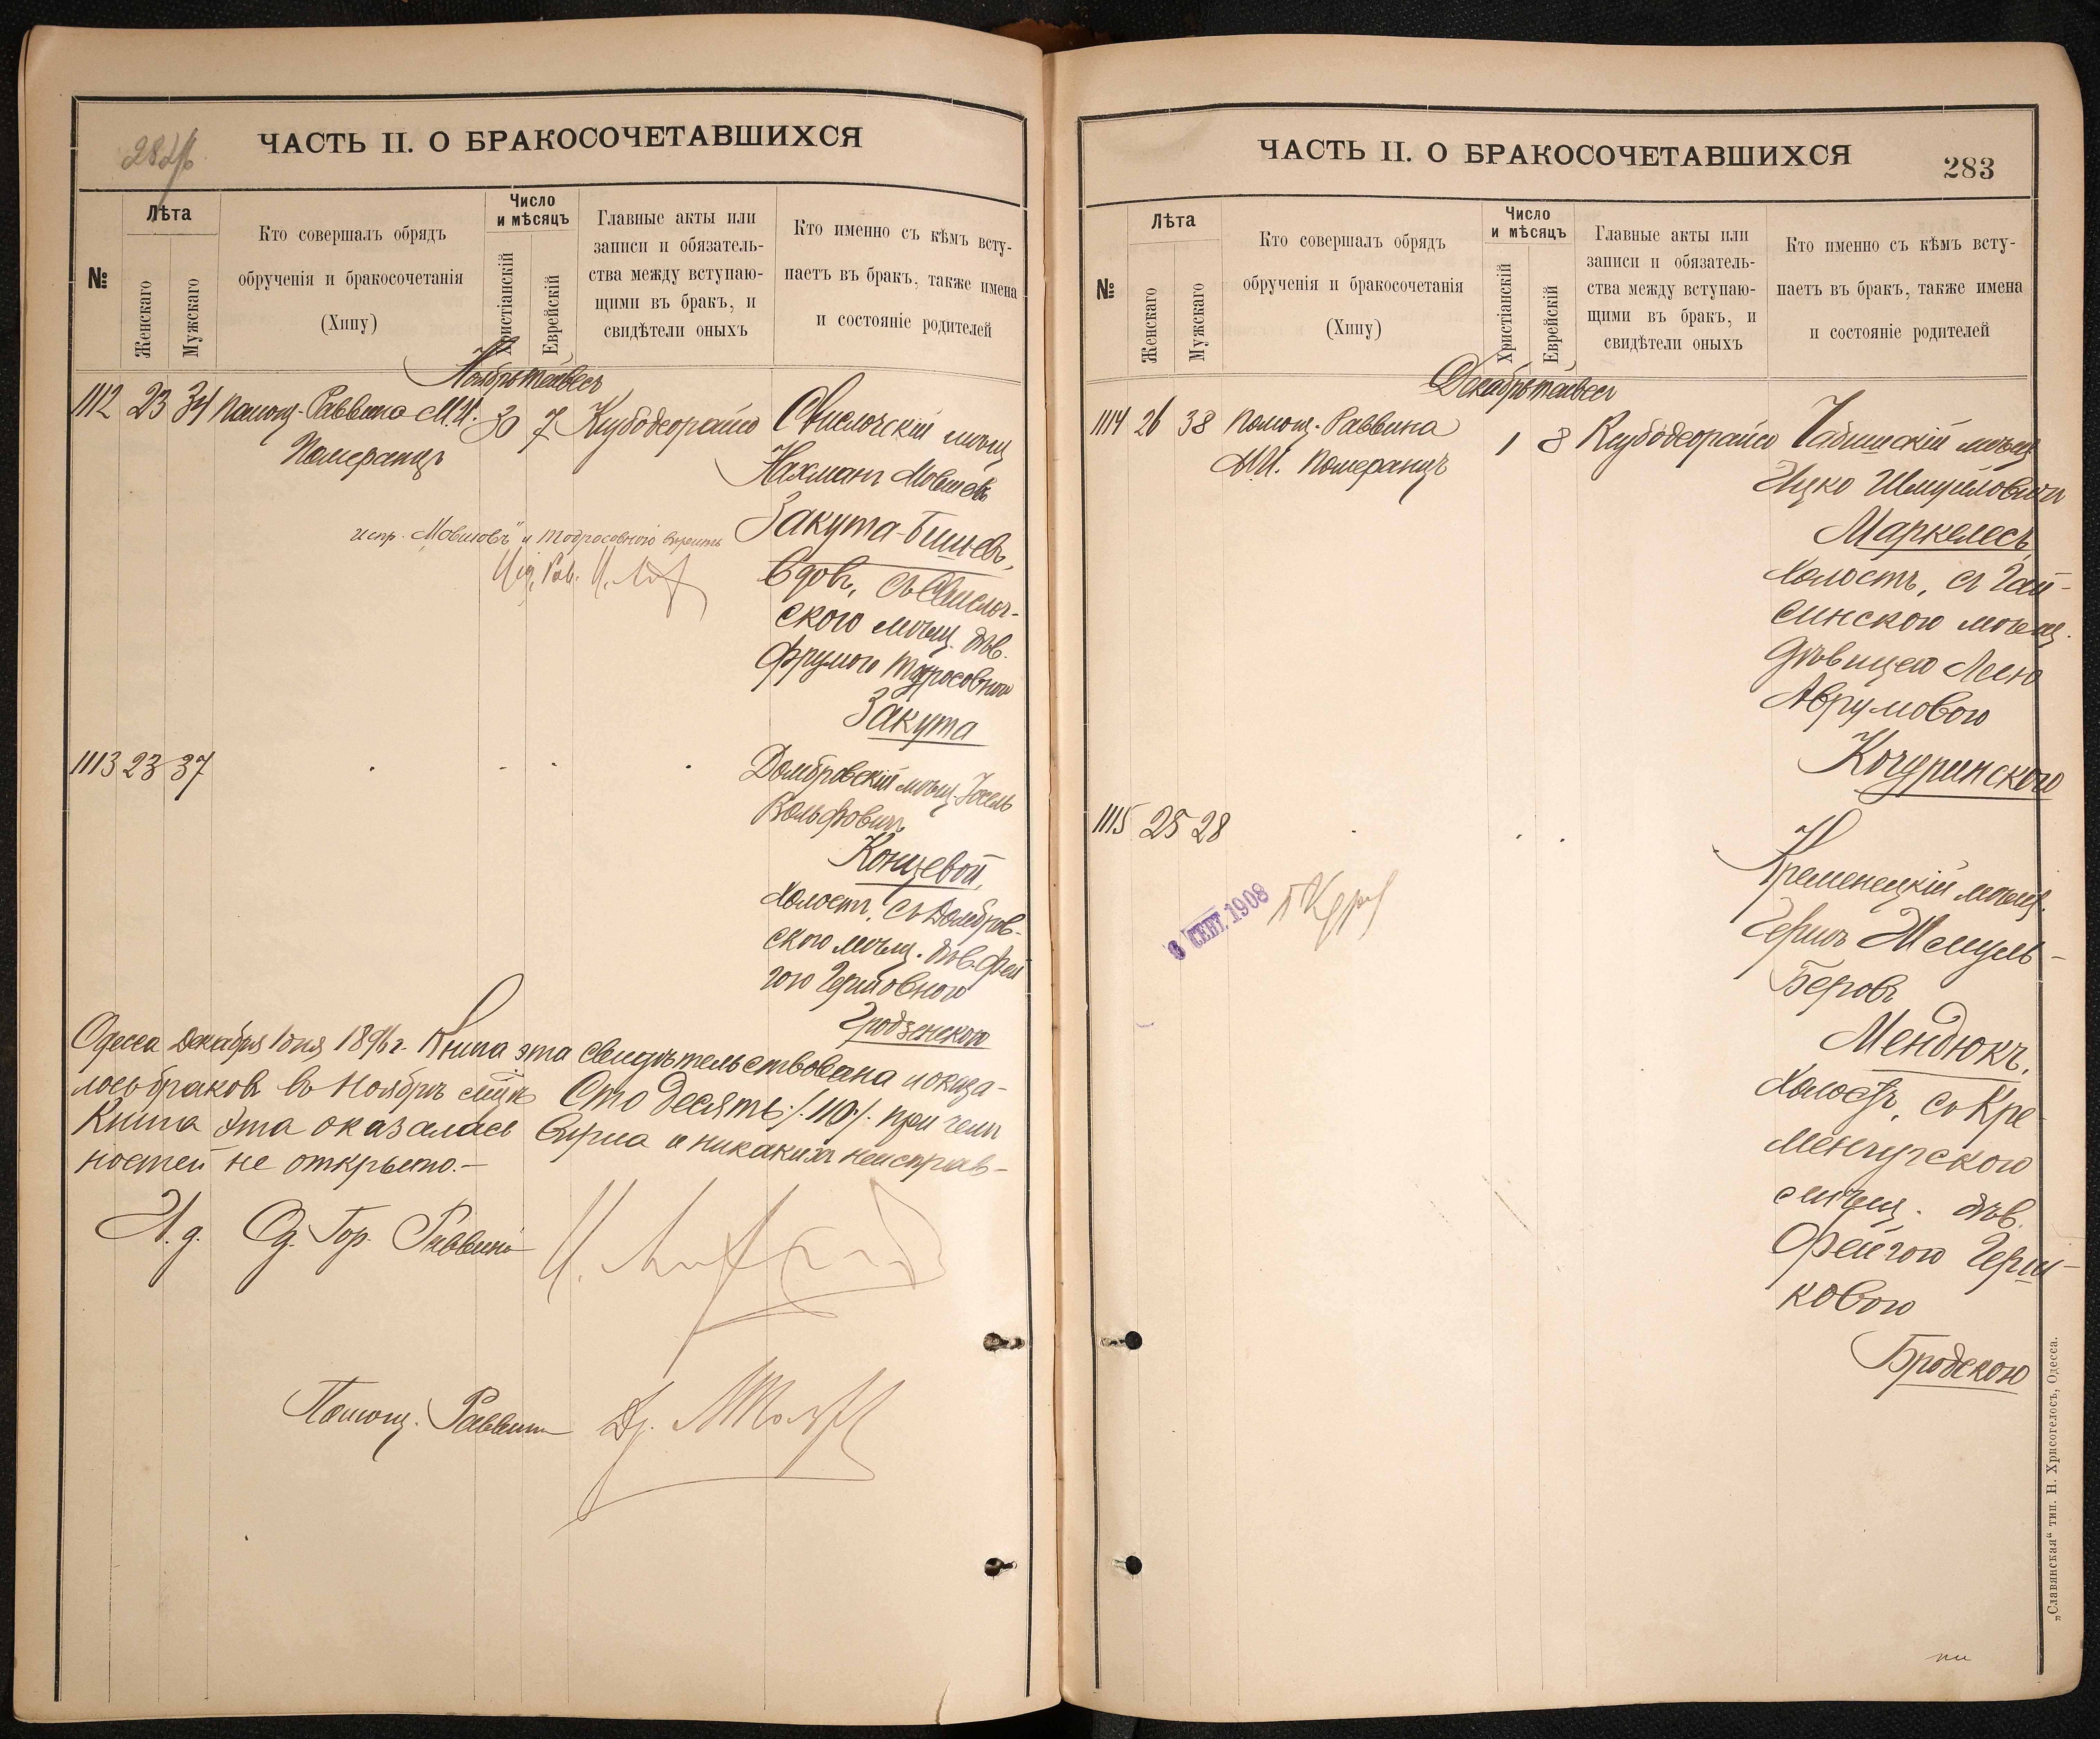 ЧАСТЬ II. О БРАКОСОЧЕТАВШИХСЯ
№
Лѣта
Женскаго
Мужскаго
Кто совершалъ обрядъ
обрученія и бракосочетанія
(Хипу)
Число
и мѣсяцъ
Христіанскій
Еврейскій
Главные акты или
записи и обязатель-
ства между вступаю-
щими въ бракъ, и
свидѣтели оныхъ
Кто именно съ кѣмъ всту-
паетъ въ бракъ, также имена
и состояніе родителей
Ноябрь тейвесъ
1112 23 34 Помощ. Раввина М.И. 30 7
Померанцъ
Свислочскій мѣщ.
Нахманъ Мовшевъ
Закута-Бишевъ,
вдов., съ Свислоч-
скою мѣщ. дѣв.
Фрумою Тодросовною
Закута
испр. „Мовшовъ" и Тодросовною вѣрить
1113 23 37
Домбровскій мѣщ. Іосель
Вольфовичъ
Концевой,
холостъ, съ Домбров-
скою мѣщ. дѣв. Фей
гою Гершовною
Гродзенскою
Одесса Декабря 1 дня 1896 г. Книга эта свидѣтельствована и оказа-
лось браковъ въ Ноябрѣ мѣсяцѣ Сто десять /.110/. при чемъ
Книга эта оказалась вѣрна и никакихъ неисправ-
ностей не открыто.—
И. д. Од. Гор. Раввина
Помощ. Раввина
ЧАСТЬ II. О БРАКОСОЧЕТАВШИХСЯ
283
№
Лѣта
Женскаго
Мужскаго
Кто совершалъ обрядъ
обрученія и бракосочетанія
(Хипу)
Число
и мѣсяцъ
Христіанскій
Еврейскій
Главные акты или
записи и обязатель-
ства между вступаю-
щими въ бракъ, и
свидѣтели оныхъ
Кто именно съ кѣмъ всту-
паетъ въ бракъ, также имена
и состояніе родителей
Декабрь тейвесъ
1114 26 38 Помощ. Раввина 1 8
М.И. Померанцъ
мѣщ.
Ицко Шмуиловичъ
Маркелесъ,
холостъ, съ Гай-
синскою мѣщ.
дѣвицею Леею
Аврумовою
Кочуринскою
1115 25 28
Кременецкій мѣщ.
Гершъ Шмуль-
Беровъ
Мендюкъ,
холостъ, съ Кре-
менчугскою
мѣщ. дѣв.
Фейгою Герш-
ковою
Бродскою
СЕНТ. 1908
„Славянская" тип. Н. Хрисогелосъ, Одесса.